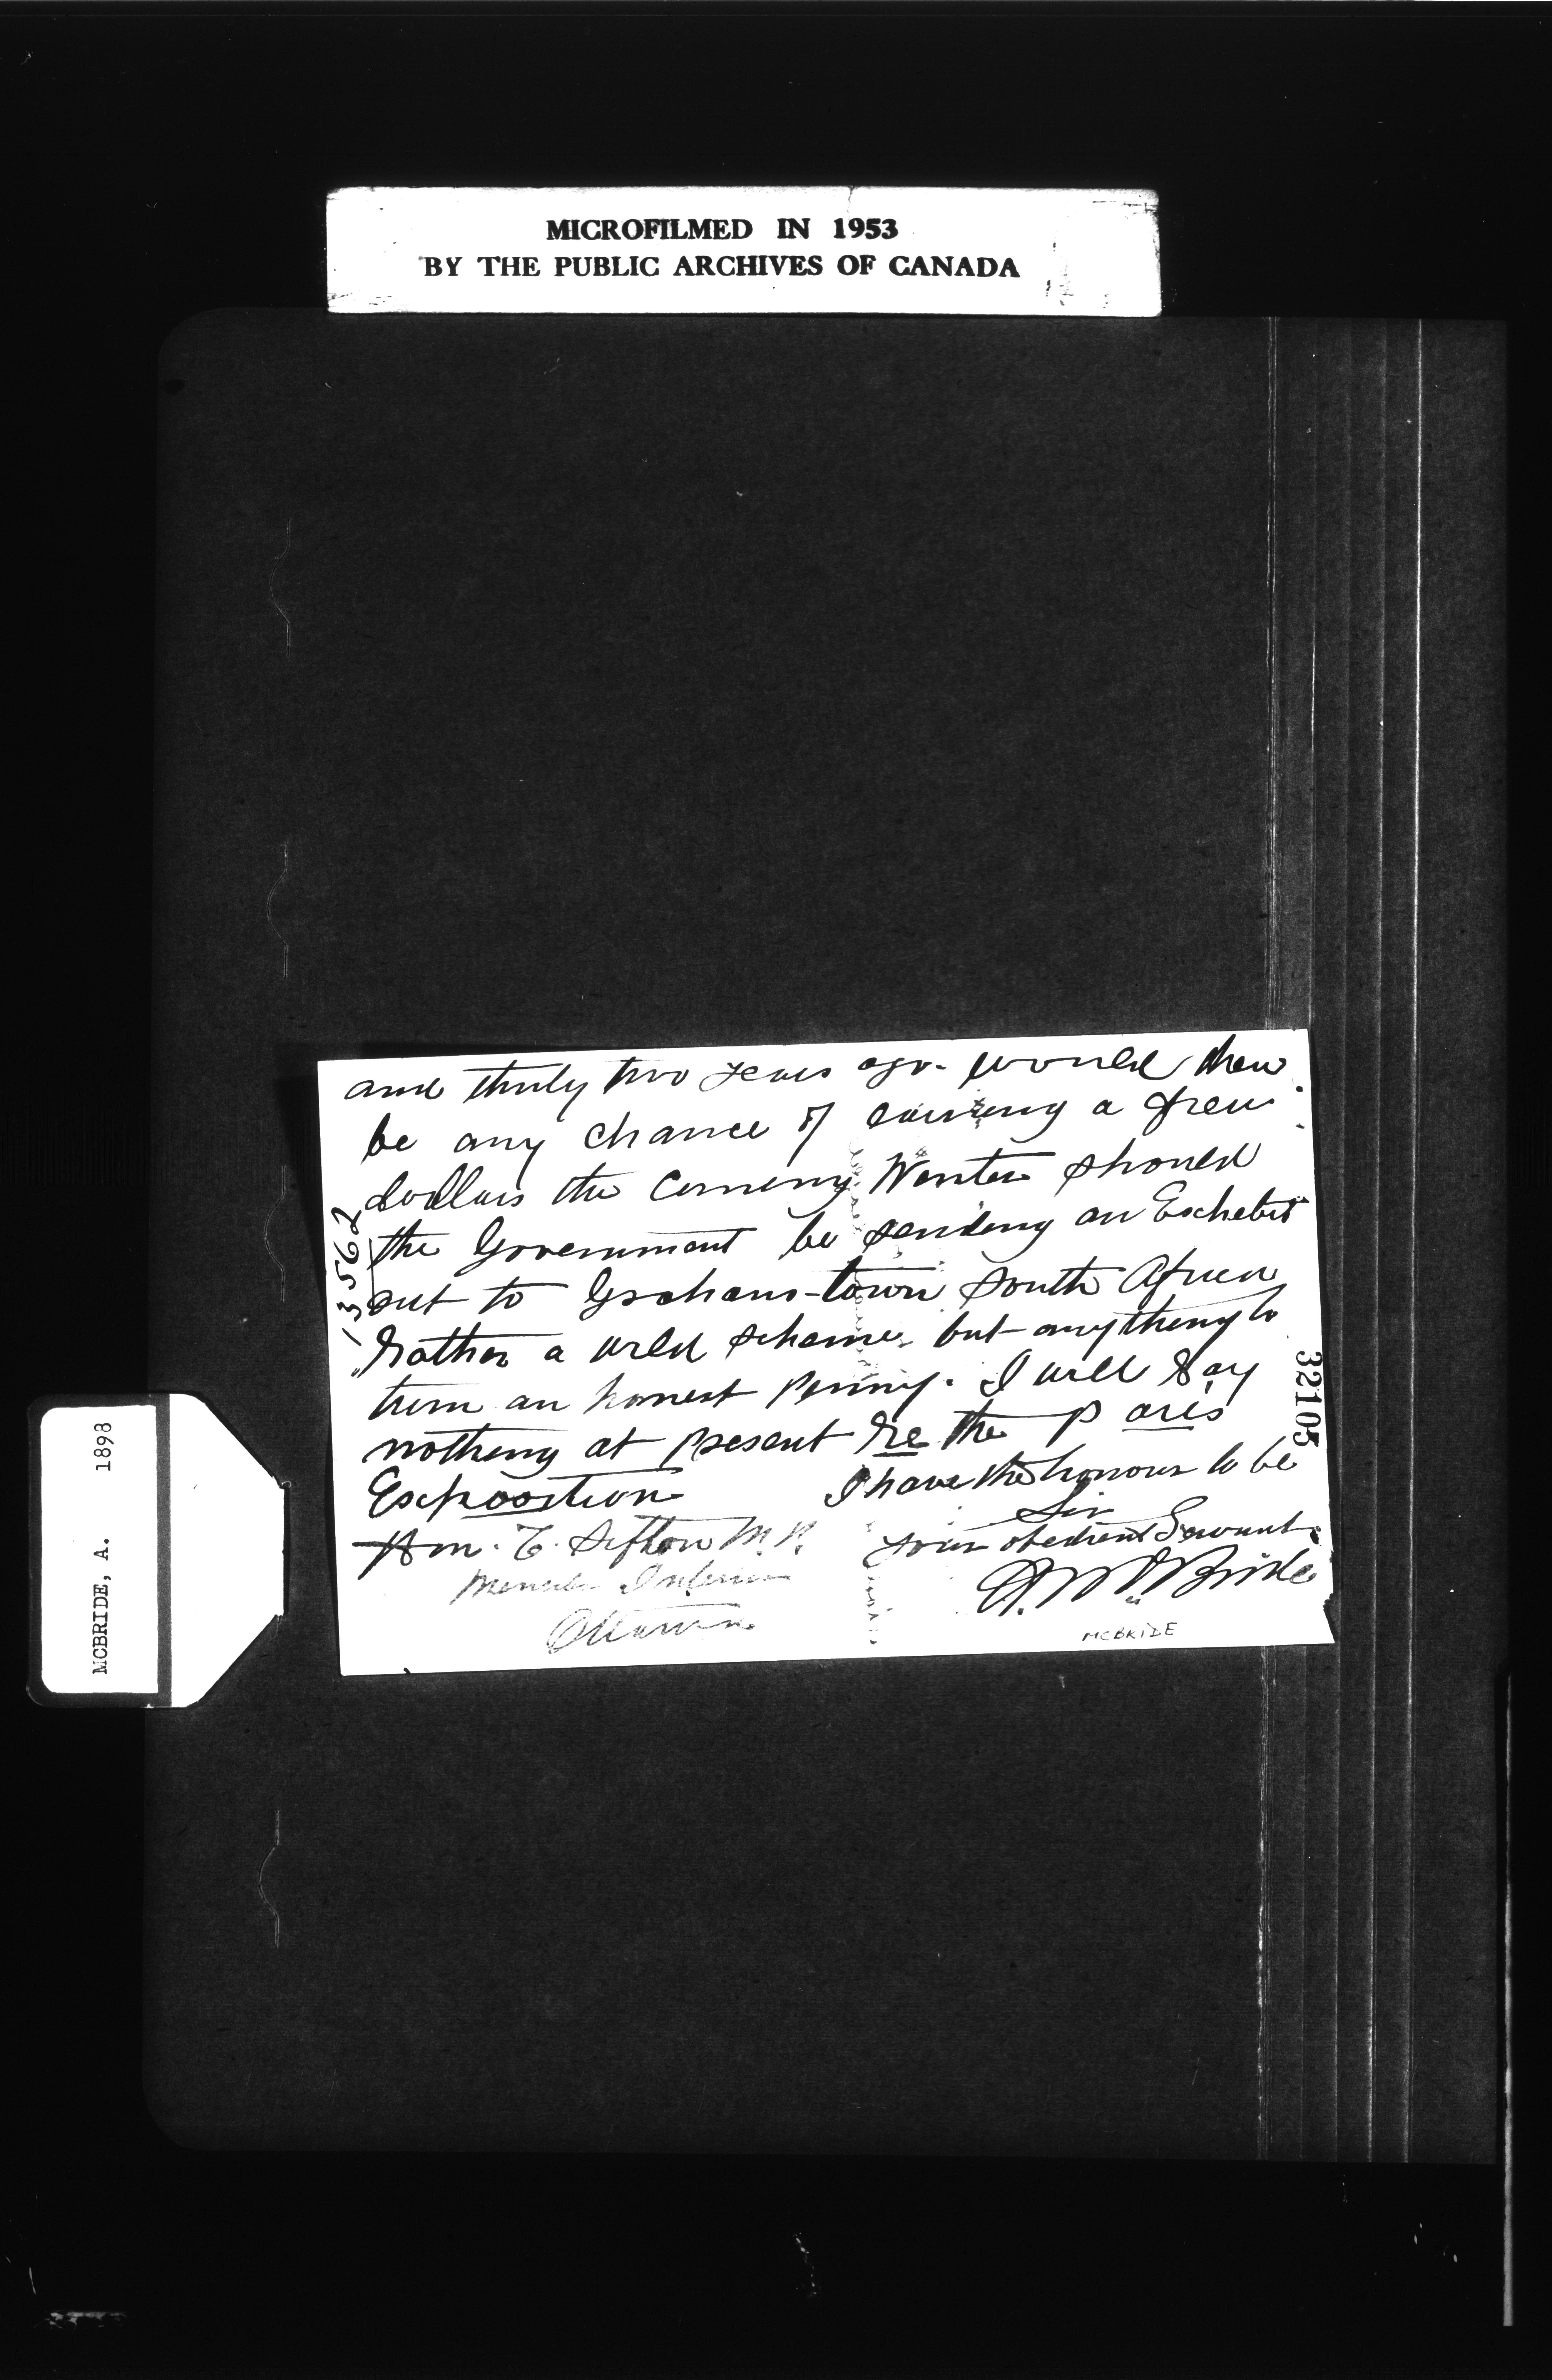 MICROFILMED IN 1953
BY THE PUBLIC ARCHIVES OF CANADA
and thirty two years ago. would there
be any chance of earning a few
dollars the coming Winter should
the Government be sending an Exhebit
out to Grahams-town South Africa
Rather a wild scheme but anything to
turn an honest penny. I will say
nothing at present re the Paris
Exposition
I have the honour to be
Sir
your obedient Servant
A. McBride
MCBRIDE
Hon. C. Sifton M.P.
Minister Interior
Ottawa
135562
32105
MCBRIDE, A. 1898